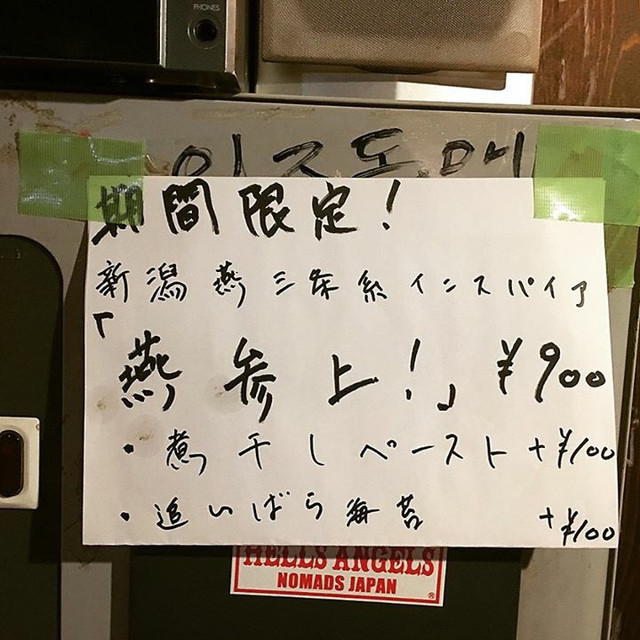 PHONES
期間限定!
新潟燕三条系インスパイア
「燕参上!」 ¥900
・煮干しペースト +¥100
・追いばら海苔 +¥100
HELLS ANGELS
NOMADS JAPAN
®